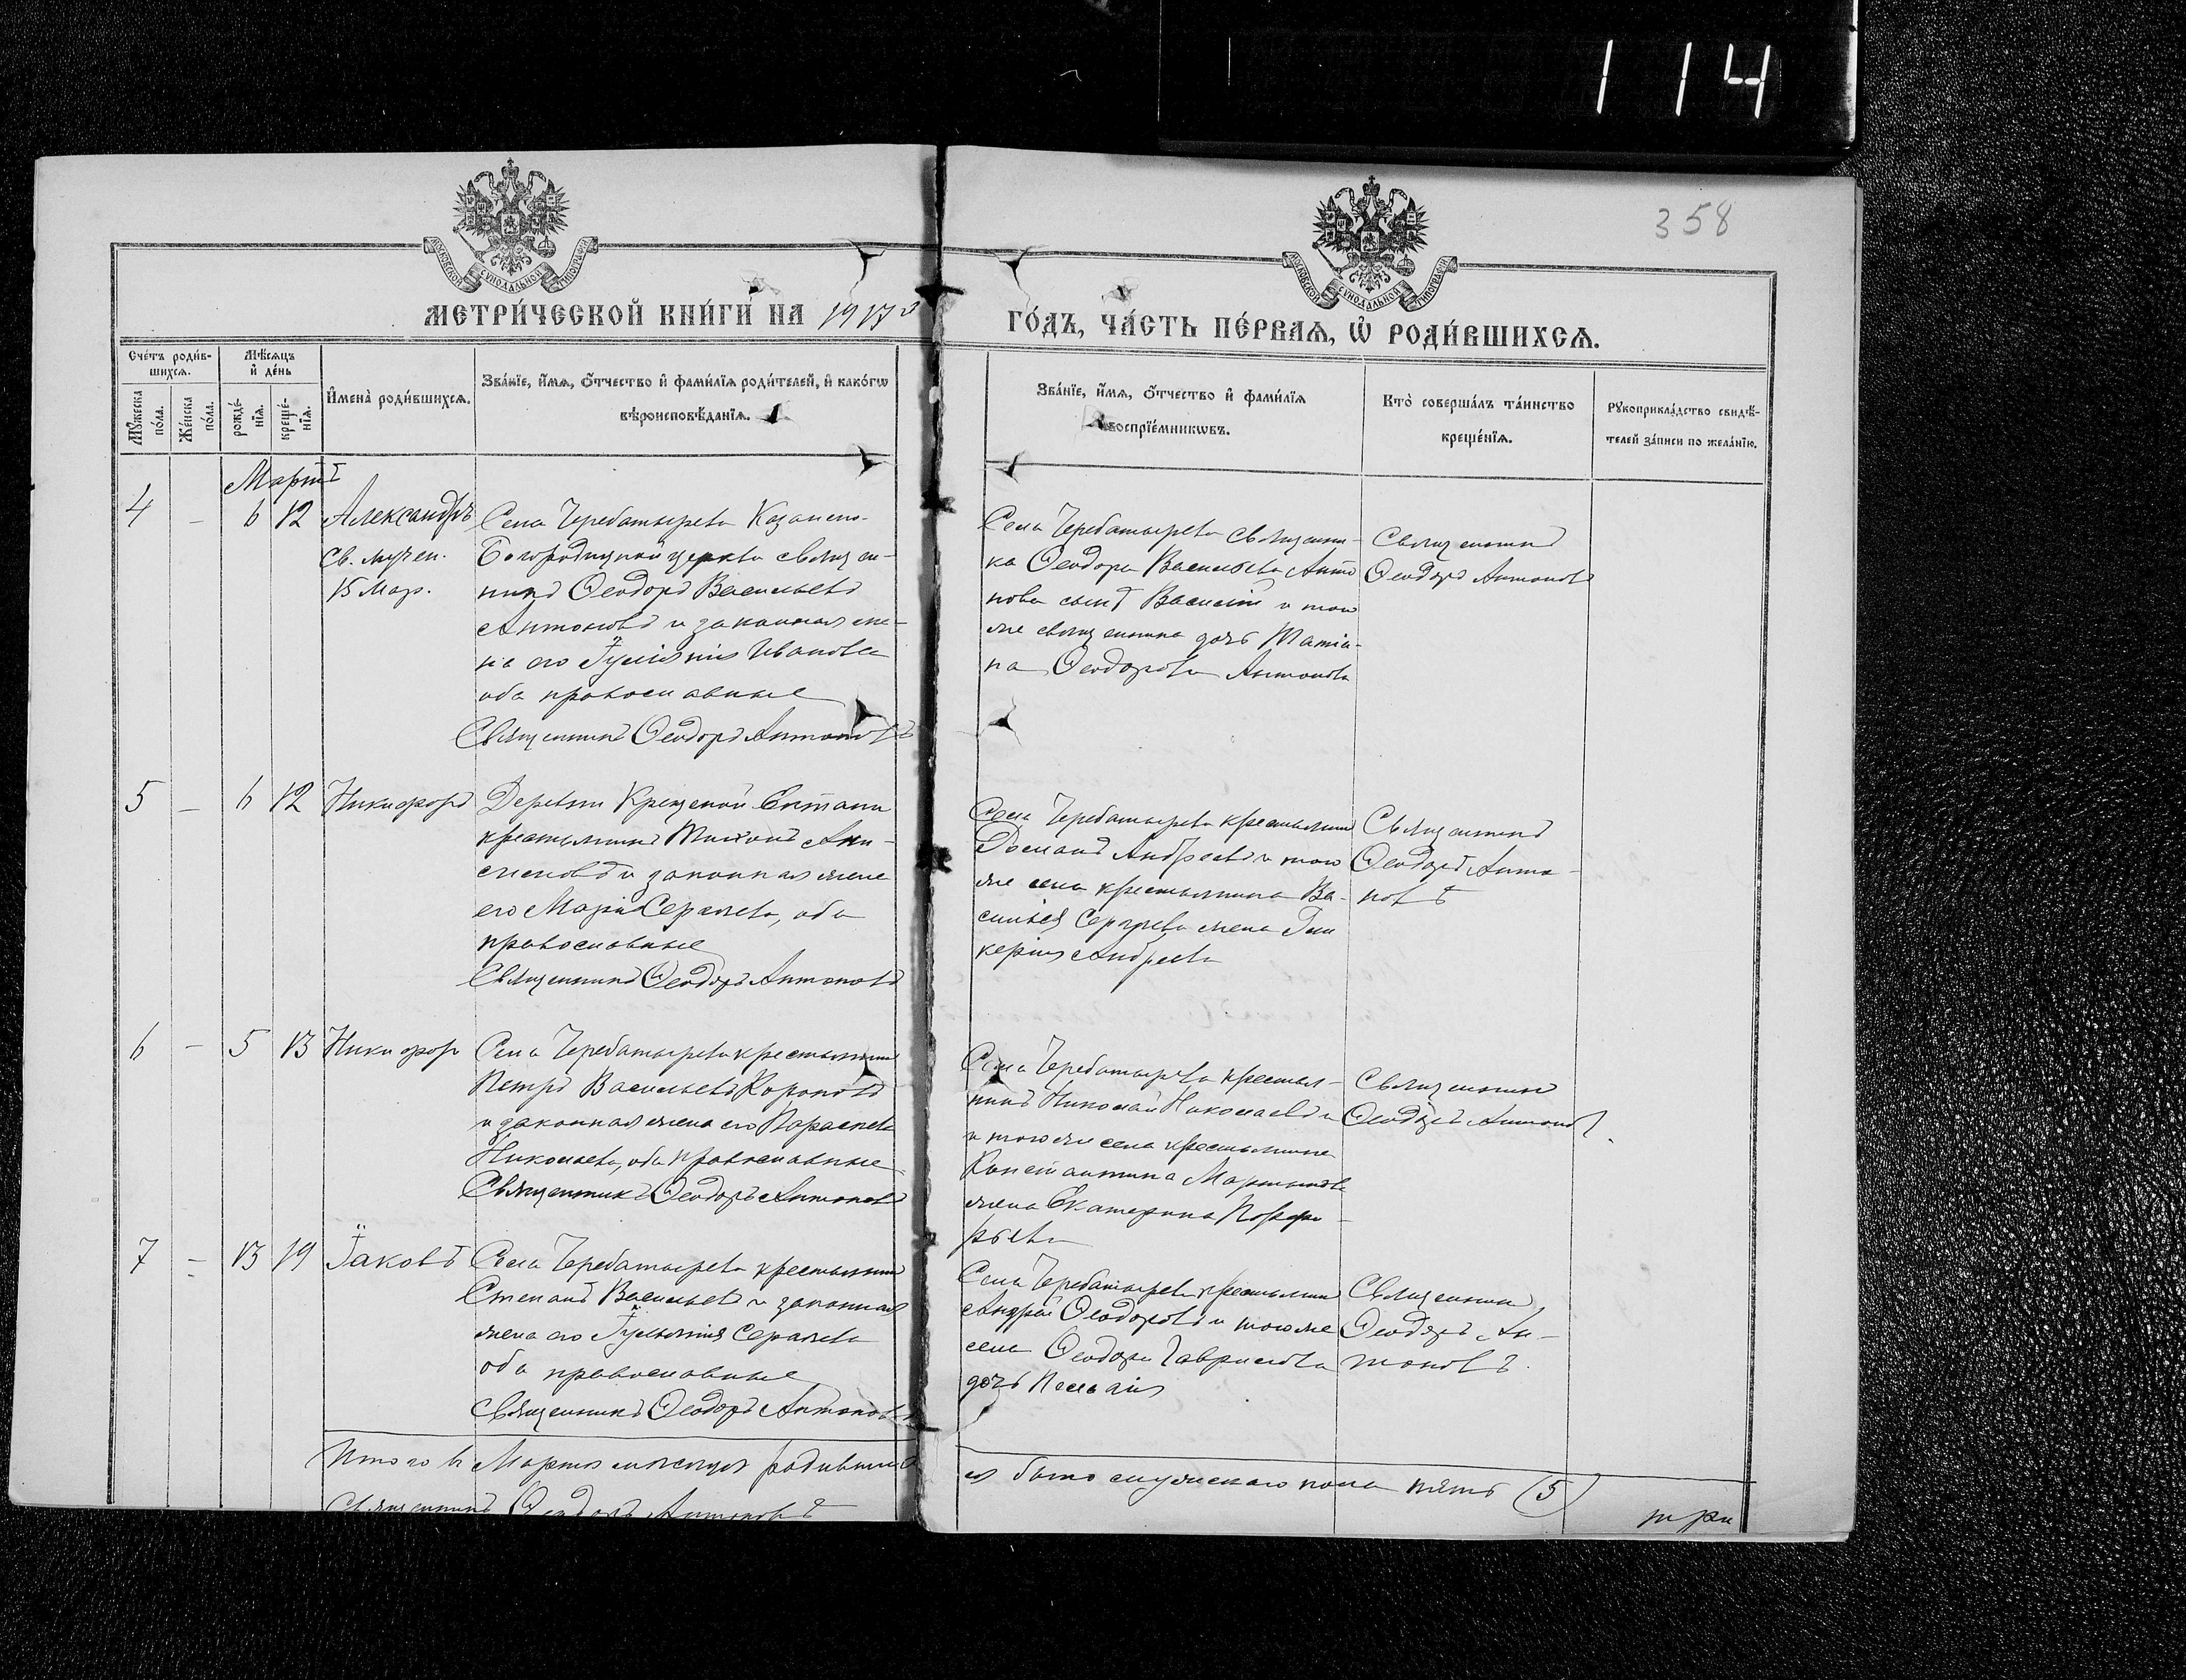 114
358
МОСКОВСКОЙ СѴНОДАЛЬНОЙ ТИПОГРАФІИ
МОСКОВСКОЙ СѴНОДАЛЬНОЙ ТИПОГРАФІИ
МЕТРИ́ЧЕСКОЙ КНИ́ГИ НА 1917
ГО́ДЪ, ЧА́СТЬ ПЕ́РВАѦ, Ѡ҆ РОДИ́ВШИХСѦ.
Сче́тъ роди́в-
шихсѧ.
Мѣ́сѧцъ
и҆ де́нь
И҆мена̀ роди́вшихсѧ.
Зва́нїе, и҆́мѧ, ѻ҆́тчество и҆ фами́лїѧ роди́телей, и҆ како́гѡ
вѣроисповѣ́данїѧ.
Мꙋ́жеска
по́ла.
Же́нска
по́ла.
рожде́-
нїѧ.
креще́-
нїѧ.
Зва́нїе, и҆́мѧ, ѻ҆́тчество и҆ фами́лїѧ
воспрїе́мникѡвъ.
Кто̀ соверша́лъ та́инство
креще́нїѧ.
Рꙋкоприкла́дство свидѣ́-
телей за́писи по жела́нїю.
Мартъ
4 - 6 12 Александръ
Св. мучен.
15 Мар.
Села Черебатырева Казанско-
Богородицкой церкви священ-
никъ Ѳеодоръ Васильевъ
Антоновъ и законная же-
на его Іуліанія Иванова
оба православные
Священникъ Ѳеодоръ Антоновъ
Села Черебатырева священни-
ка Ѳеодора Васильева Анто
нова сынъ Василій и того
же священника дочь Татіа-
на Ѳеодорова Антонова
Священникъ
Ѳеодоръ Антоновъ
5 - 6 12 Никифоръ
Деревни Крещеной
крестьянинъ Тихонъ
и законная жена
его Марія Сергѣева, оба
православные
Священникъ Ѳеодоръ Антоновъ
Села Черебатырева крестьянин
Андреевъ и того
же села крестьянина Ва-
силія Сергѣева жена Гли
керія Андреева
Священникъ
Ѳеодоръ Анто-
новъ
6 - 5 13 Никифор
Села Черебатырева крестьянин
Петръ Васильевъ
и законная жена его Параскева
Николаева, оба православные
Священникъ Ѳеодоръ Антоновъ
Села Черебатырева крестья-
нинъ Николай Николаевъ
и того же села крестьянина
Константина Мартынова
жена Екатерина Порфи-
рьева
Священникъ
Ѳеодоръ Антоновъ
7 - 13 19 Іаковъ
Села Черебатырева крестьянин
Степанъ Васильевъ и законная
жена его Іуліанія Сергѣева
оба православные
Священникъ Ѳеодоръ Антоновъ
Села Черебатырева крестьянин
Андрей Ѳеодоровъ и того же
села Ѳеодора Гаврилова
дочь Пелагія
Священник
Ѳеодоръ Ан-
тоновъ.
Итого в Мартѣ мѣсяцѣ родивших
ся было мужескаго пола пять (5)
Священникъ Ѳеодоръ Антоновъ
три